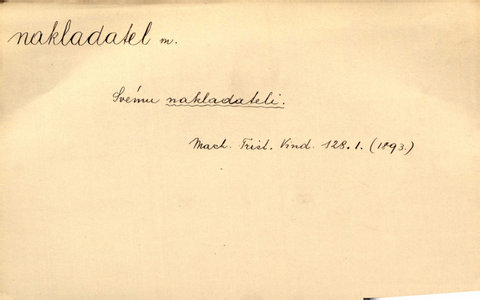 nakladatel m.
Svému nakladateli.
Mach. Trist. Vind. 128.1. (1893.)